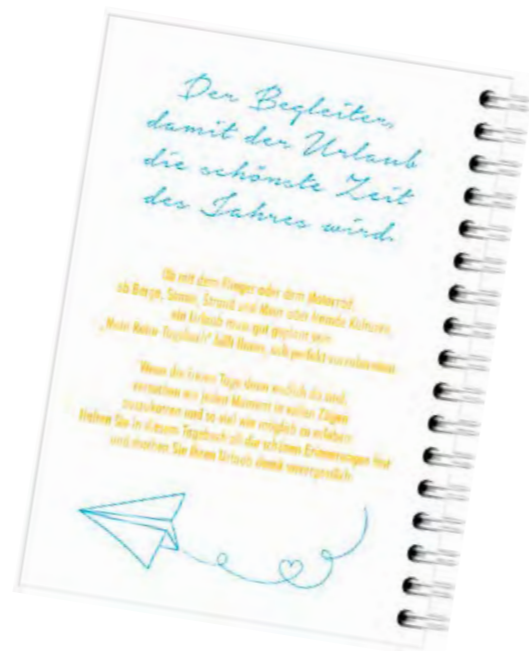 Der Begleiter,
damit der Urlaub
die schönste Zeit
des Jahres wird.
Ob mit dem Flieger oder dem Motorrad,
ob Berge, Sonne, Strand und Meer oder fremde Kulturen,
ein Urlaub muss gut geplant sein.
„Mein Reise-Tagebuch“ hilft Ihnen, sich perfekt vorzubereiten.
Wenn die freien Tage dann endlich da sind,
versuchen wir jeden Moment in vollen Zügen
auszukosten und so viel wie möglich zu erleben.
Halten Sie in diesem Tagebuch all die schönen Erinnerungen fest
und machen Sie Ihren Urlaub damit unvergesslich.